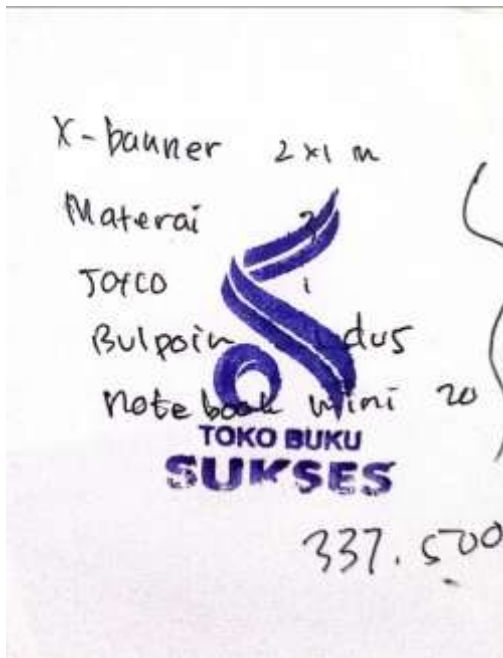 X-banner 2x1 m
Materai 3
Joyco 1
Bulpoin dus
Notebook mini 20
TOKO BUKU
SUKSES
337.500